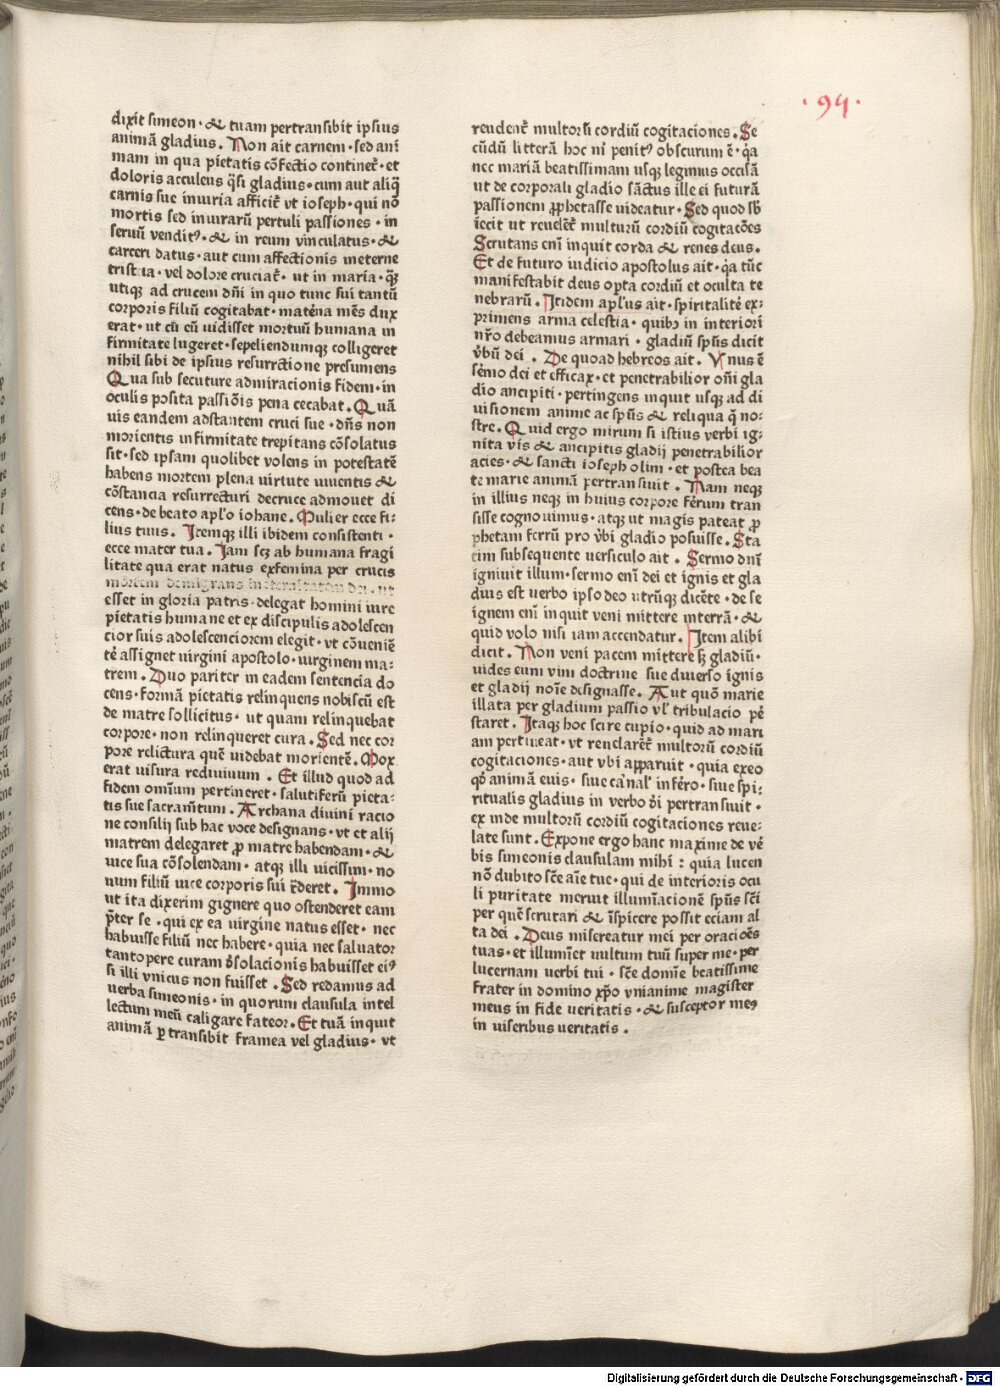 ·94·
dixit simeon · & tuam pertransibit ipsius
animã gladius . Non ait carnem · sed ani
mam in qua pietatis cõfectio continet̃ · et
doloris acculeus q̃si gladius · cum aut aliq̃
carnis sue iniuria afficit̃ vt ioseph · qui nõ
mortis sed iniurarũ pertuli passiones · in
seruũ venditꝰ · & in reum vinculatus · &
carceri datus · aut cum affectionis meterne
tristicia · vel dolore cruciat̃ · ut in maria · q̃
utiqꝫ ad crucem dñi in quo tunc sui tantũ
corporis filiũ cogitabat · materna mẽs dux
erat · ut cũ eũ uidisset mortuũ humana in
firmitate lugeret · sepeliendumqꝫ colligeret
nihil sibi de ipsius resurrectione presumens
Qua sub secuture admiracionis fidem · in
oculis posita passiõis pena cecabat . Quã
uis eandem adstantem cruci sue · dñs non
morientis infirmitate trepitans cõsolatus
sit · sed ipsam quolibet volens in potestatẽ
habens mortem plena virtute viuentis &
cõstancia resurrecturi decruce admouet di
cens · de beato apl'o iohane . Mulier ecce fi-
lius tuus . Itemqꝫ illi ibidem consistenti ·
ecce mater tua . Iam scꝫ ab humana fragi
litate qua erat natus exfemina per crucis
mortem demigrans in eternitatem dei · ut
esset in gloria patris · delegat homini iure
pietatis humane et ex discipulis adolescen
cior suis adolescenciorem elegit · vt cõueniẽ
tẽ assignet uirgini apostolo · uirginem ma-
trem . Duo pariter in eadem sentencia do
cens · formã pietatis relinquens nobiscũ est
de matre sollicitus · ut quam relinquebat
corpore · non relinqueret cura . Sed nec cor
pore relictura quẽ uidebat morientẽ . Mox
erat uisura rediuiuum . Et illud quod ad
fidem omĩum pertineret · salutiferũ pieta-
tis sue sacram̃tum . Archana diuini racio
ne consilij sub hac voce designans · vt et alij
matrem delegaret ꝓ matre habendam · &
uice sua cõsolendam · atqꝫ illi uicissim · no
num filiũ uice corporis sui r̃deret . Immo
ut ita dixerim gignere quo ostenderet eam
p̃ter se · qui ex ea uirgine natus esset · nec
habuisse filiũ nec habere · quia nec saluator
tantopere curam ꝯsolacionis habuisset eiꝰ
si illi vnicus non fuisset . Sed redamus ad
uerba simeonis · in quorum clausula intel
lectum meũ caligare fateor . Et tuã inquit
animã ꝑtransibit framea vel gladius · vt
reudent̃ multorũ cordiũ cogitaciones . Se
cũdũ litterã hoc mˡ penitꝰ obscurum ẽ · q̃a
nec mariã beatissimam usqꝫ legimus occisã
ut de corporali gladio sãctus ille ei futurã
passionem ꝓphetasse uideatur . Sed quod sb̃
iecit ut reueler̃t multurũ cordiũ cogitacões
Scrutans eñ inquit corda & renes deus .
Et de futuro iudicio apostolus ait · q̃a tũc
manifestabit deus opta cordiũ et oculta te
nebrarũ . Itidem apl'us ait · spiritalitẽ ex-
primens arma celestia · quibꝫ in interiori
nr̃o debeamus armari · gladiũ spũs dicit
ṽbũ dei . De quoad hebreos ait . Vnus ẽ
sẽmo dei et efficax · et penetrabilior om̃i gla
dio ancipiti · pertingens inquit usqꝫ ad di
uisionem anime ac spũs & reliqua q̃ no-
stre . Quid ergo mirum si istius verbi ig-
nita vis & ancipitis gladij penetrabilior
acies · & sancti ioseph olim · et postea bea
te marie animã pertransiuit . Nam neqꝫ
in illius neqꝫ in huius corpore ferrum tran
sisse cognouimus · atqꝫ ut magis pateat ꝓ
phetam ferrũ pro ṽbi gladio posuisse . Sta
tim subsequente versiculo ait . Sermo dñi
igniuit illum · sermo eñ dei et ignis et gla
dius est uerbo ipso deo utrũqꝫ dicẽte · de se
ignem eñ inquit veni mittere interrã · &
quid volo nisi iam accendatur . Item alibi
dicit . Non veni pacem mittere sꝫ gladiũ ·
uides eum vim doctrine sue diuerso ignis
et gladij noĩe designasse . Aut quõ marie
illata per gladium passio vl' tribulacio p̃e
staret . Itaqꝫ hoc scire cupio · quid ad mari
am pertineat · vt reuelarẽt̃ multorũ cordiũ
cogitaciones · aut vbi apparuit · quia exeo
qꝰ animã euis · siue carnal' inferro · siue spi-
ritualis gladius in verbo d̃i pertransiuit ·
ex inde multorũ cordiũ cogitaciones reue-
late sunt . Expone ergo hanc maxime de v̾e
bis simeonis clausulam mihi : quia lucen
nõ dubito sc̃e aĩe tue · qui de interioris ocu
li puritate meruit illumiacionẽ spũs sc̃i
per quẽ scrutari & ĩspicere possit eciam al
ta dei . Deus misereatur mei per oracioẽs
tuas · et illumiet uultum tuũ super me · per
lucernam uerbi tui · sc̃e domĩe beatissime
frater in domino xp̃o vnianime magister
meus in fide ueritatis · & susceptor meꝰ
in uiseribus ueritatis .
Digitalisierung gefördert durch die Deutsche Forschungsgemeinschaft - DFG